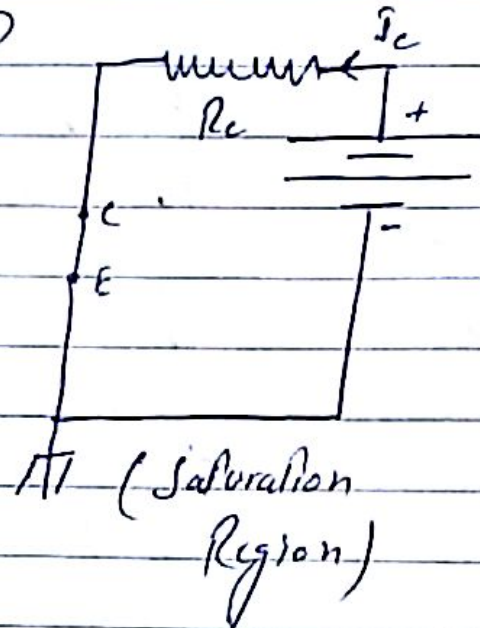 Ic
Rc
+
C
-
E
(Saturation
Region)